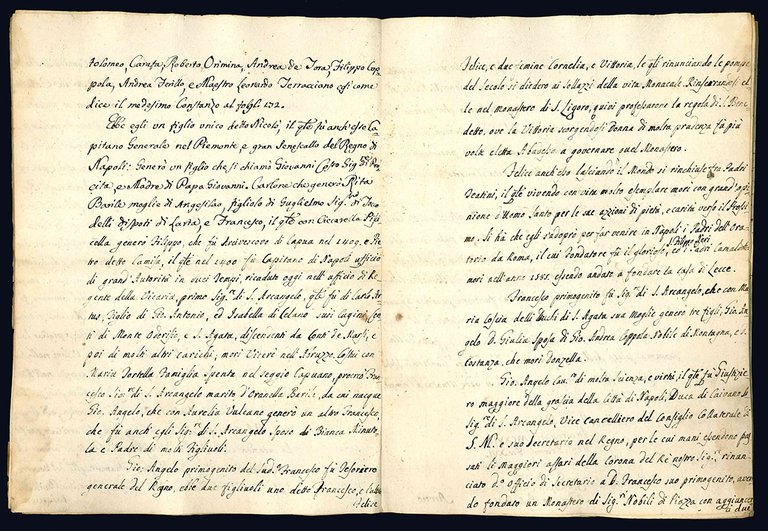 tolomeo, Carafa, Roberto Orimina, Andrea de Tora, Filippo Cop
pola, Andrea Terillo, e Maestro Leonardo Terracciono così come
dice il medesimo Constanzo al fogli 172.
Ebbe egli un figlio unico detto Nicolò, il qte fù anch'esso Ca
pitano Generale nel Piemonte e gran Senescallo del Regno di
Napoli: Generò un figlio che si chiamò Giovanni
cita, e Madre di Papa Giovanni. Carlone che generò Rita
Barile moglie di Angesilao, figliolo di Guglielmo Sigr. di
delli dispoti di Larta, e Francesco, il qte con Ciccarella Pisci
cella generò Filippo, che fù Arcivescovo di Capua nel 1409. e Pie
tro detto Camisa, il qte nel 1400 fù Capitano di Napoli ufficio
di grand'Autorità in quei tempi, ricaduto oggi nell'ufficio di Re
gente della Vicaria, primo Sigr. di S. Arcangelo, qte fù di Carlo Ar
tus, Figlio di Gio: Antonio, ed Isabella di Celano suoi Cugini, Con
ti di Monte Odorisio, e S. Agata, discendenti da Conti de Marsi, e
poi di molti altri carichi, morì Vicerè nell'Abruzzo. Costui con
Maria Tortella Famiglia spenta nel seggio Capuano, procreò Fran
cesco Sigr. di S. Arcangelo marito d'Oranella Barile, da cui nacque
Gio: Angelo, che con Aurelia Vulcano generò un altro Francesco,
che fù anch'egli Sigr. di S. Arcangelo Sposo di Bianca Minuto
la e Padre di molti Figliuoli.
Gio: Angelo primogenito del sudo. Francesco fù Tesoriero
generale del Regno, ebbe due figliuoli uno detto Francesco, e l'altro
Felice
Felice, e due femine Cornelia, e Vittoria, le qli rinunciando le pompe
del secolo si diedero ai sollazzi della vita Monacale Rinserrandosi el
le nel monastero di S. Ligoro, quivi professarono la regola di S. Bene
detto, ove la Vittoria scorgendosi Donna di molta prudenza fù più
volte eletta Abadessa a governare quel Monastero.
Felice anch'esso lasciando il Mondo si rinchiuse fra Padri
Teatini, il qte vivendo con vita molto esemplare morì con grand'opi
nione d'Uomo Santo per le sue azzioni di pietà, e carità verso il Prossi
mo. Si hà che egli s'adoprò per far venire in Napoli i Padri dell'Ora
torio da Roma, il cui Fondatore fù il glorioso S. Filippo Neri, ed i Padri Camaldoli
morì nell'anno 1585 essendo andato a fondare la Casa di Lecce.
Francesco primogenito fù Sigr. di S. Arcangelo, che con Ma
ria Coscia delli Duchi di S. Agata sua Moglie generò tre figli, Gio: An
gelo D. Giulia Sposa di Gio: Andrea Coppola Nobile di Montagna, e D.
Costanza, che morì Donzella.
Gio: Angelo Cavr. di molta scienza, e virtù, il qte fù Giustizie
ro maggiore della grascia della Città di Napoli, Duca di Caivano
Sigr. di S. Arcangelo, Vice Cancelliero del Consiglio Collaterale di
S. M. e suo Secretario nel Regno, per le cui mani essendono pas
sati li Maggiori affari della Corona del Rè nostro Sigr. rinun
ciato do. Officio di Secretario a D. Francesco suo primogenito, aven
do fondato un Monastero di Sigre. Nobili di Piazza con aggiunce
di due